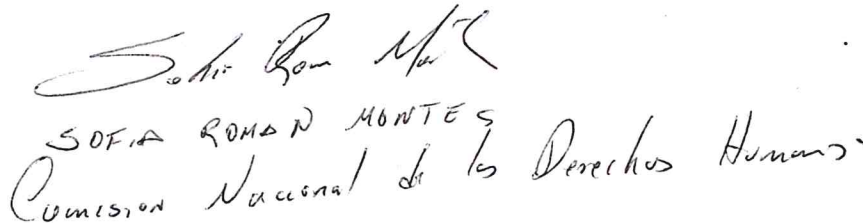 Sofia Roman Mont
SOFIA ROMAN MONTES
Comision Nacional de los Derechos Humanos.